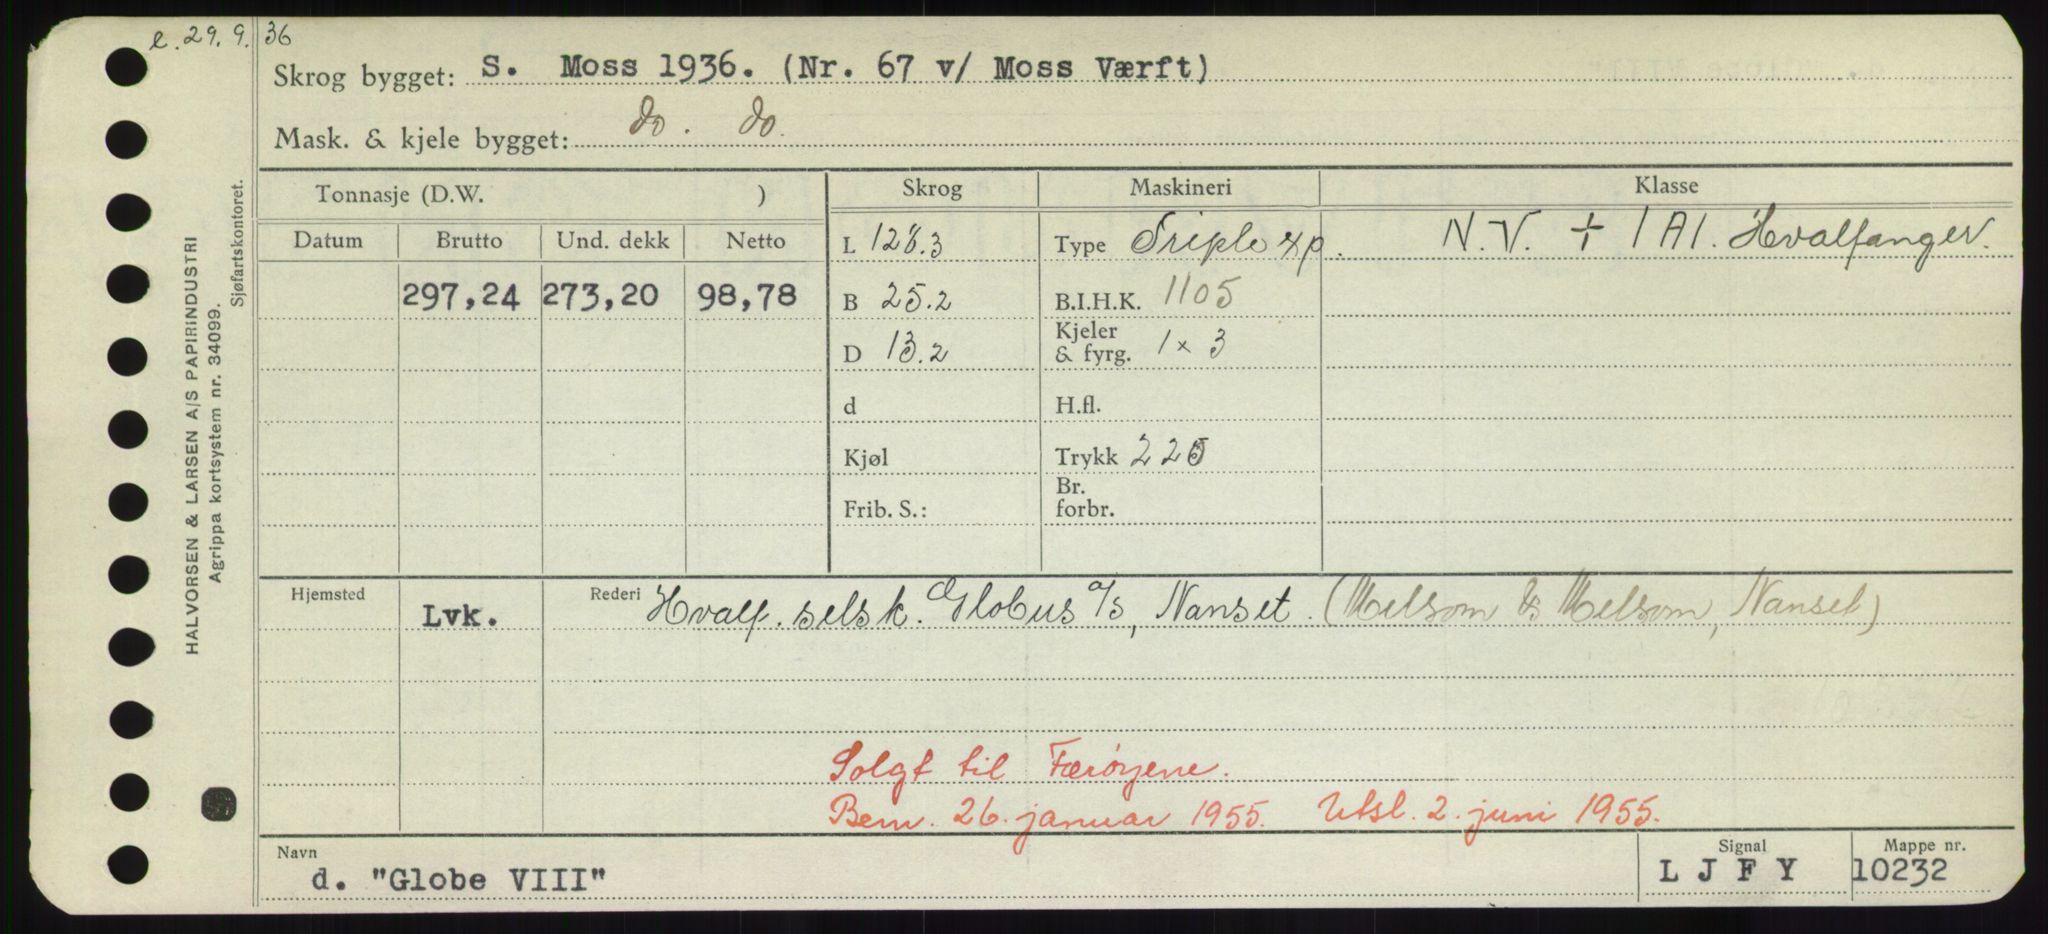 e. 29.9.36
Skrog bygget: S. Moss 1936. (Nr. 67 v/ Moss Værft)
Mask. & kjele bygget: do. do.
Tonnasje (D.W. ) Skrog Maskineri Klasse
Datum Brutto Und. dekk Netto L 128.3 Type Triple xp. N.V. + 1A1. Hvalfanger.
297,24 273,20 98,78 B 25.2 B.I.H.K. 1105
D 13.2 Kjeler & fyrg. 1 x 3
d H.fl.
Kjøl Trykk 225
Frib. S.: Br. forbr.
Hjemsted Lvk. Rederi Hvalf. selsk. Globus a/s, Nanset. (Melsom & Melsom, Nanset)
Solgt til Færøyene.
Bem. 26. januar 1955. Utsl. 2. juni 1955.
Navn Signal Mappe nr.
d. "Globe VIII" L J F Y 10232
HALVORSEN & LARSEN A/S PAPIRINDUSTRI
Agrippa kortsystem nr. 34099.
Sjøfartskontoret.